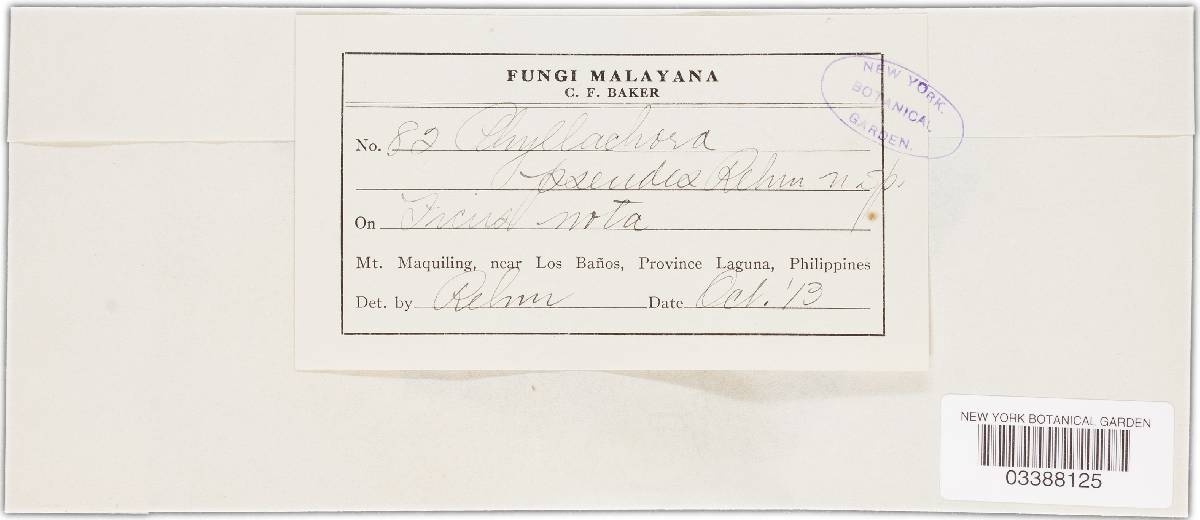 FUNGI MALAYANA
C. F. BAKER
NEW YORK
BOTANICAL
GARDEN.
No. 82 Phyllachora
pseudes Rehm n. sp.
On Ficus nota
Mt. Maquiling, near Los Baños, Province Laguna, Philippines
Det. by Rehm Date Oct. '13
NEW YORK BOTANICAL GARDEN
03388125